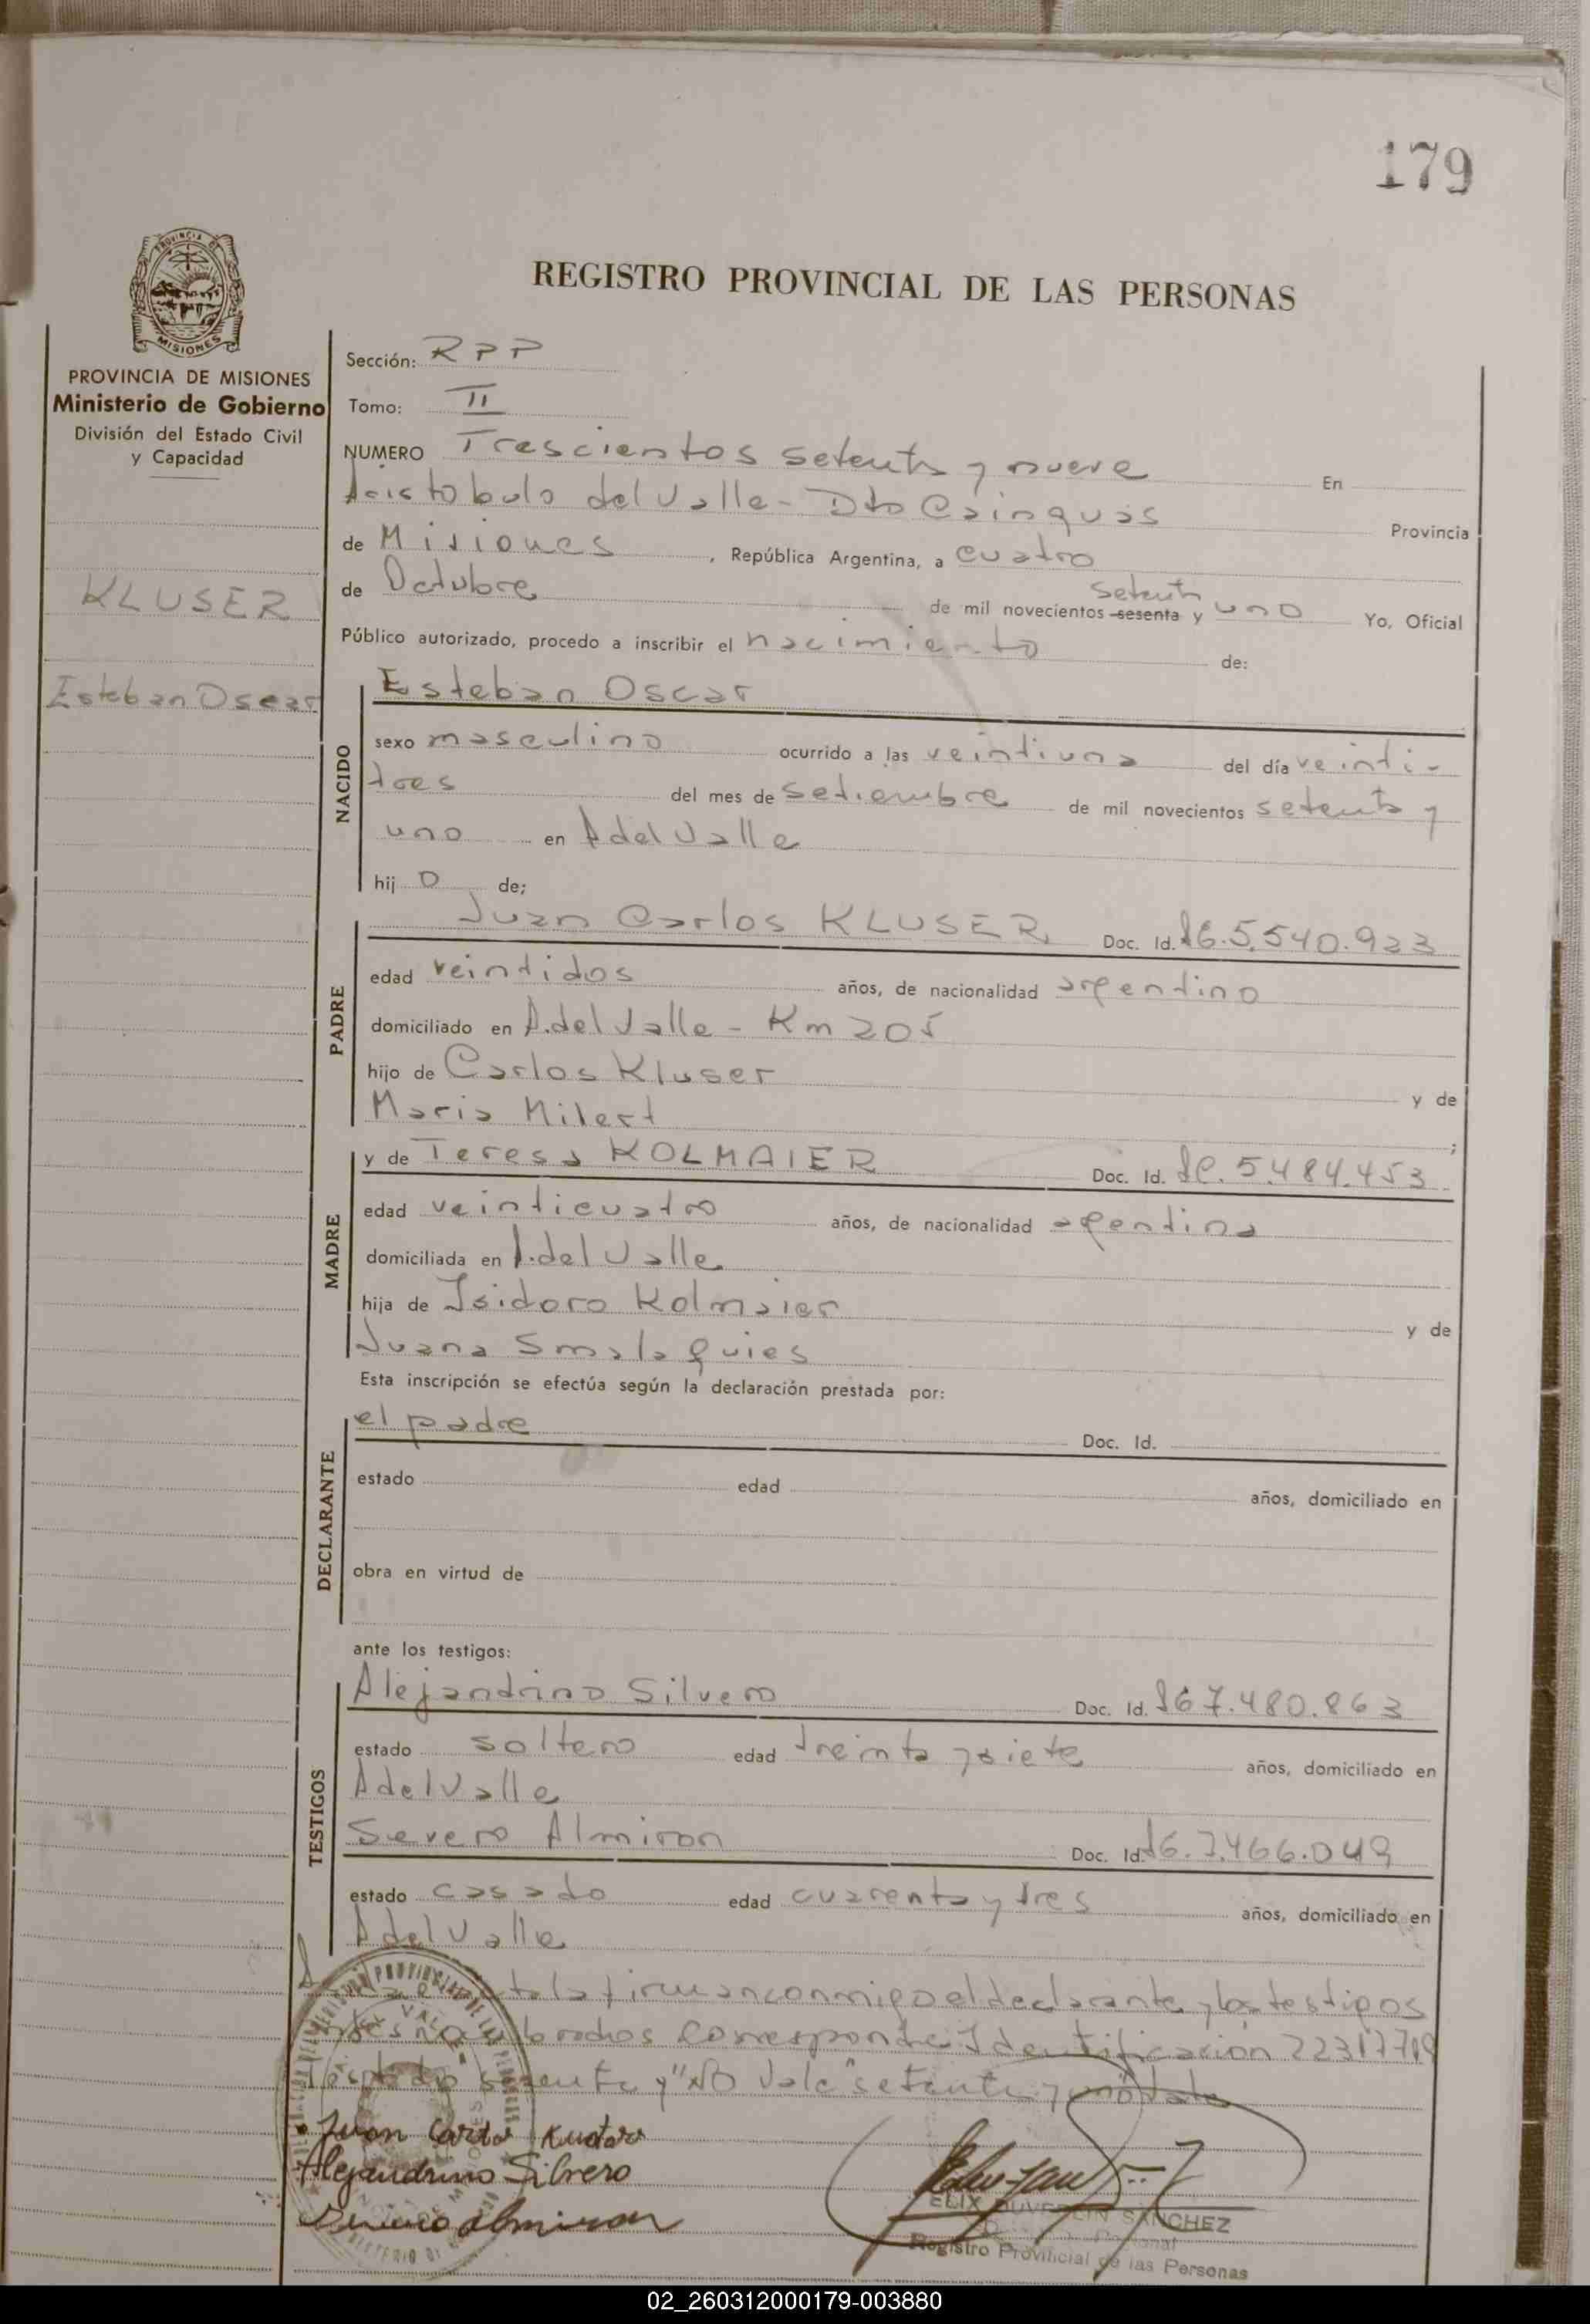 179
PROVINCIA DE
MISIONES
PROVINCIA DE MISIONES
Ministerio de Gobierno
División del Estado Civil
y Capacidad
KLUSER
Esteban Oscar
REGISTRO PROVINCIAL DE LAS PERSONAS
Sección: RPP
Tomo: II
NUMERO Trescientos setenta y nueve En
Aristobulo del Valle - Dto Cainguas Provincia
de Misiones, República Argentina, a cuatro
de Octubre de mil novecientos sesenta setenta y uno Yo, Oficial
Público autorizado, procedo a inscribir el nacimiento de:
NACIDO
Esteban Oscar
sexo masculino ocurrido a las veintiuna del día veinti-
tres del mes de setiembre de mil novecientos setenta y
uno en A del Valle
hijo de;
PADRE
Juan Carlos KLUSER Doc. Id. 5.540.923
edad veintidos años, de nacionalidad argentino
domiciliado en A. del Valle - Km 205
hijo de Carlos Kluser y de
Maria Milert ;
MADRE
y de Teresa KOLMAIER Doc. Id. 5.484.453
edad veinticuatro años, de nacionalidad argentina
domiciliada en A. del Valle
hija de Isidoro Kolmaier y de
Juana
Esta inscripción se efectúa según la declaración prestada por:
DECLARANTE
el padre Doc. Id.
estado edad años, domiciliado en
obra en virtud de
ante los testigos:
TESTIGOS
Alejandrino Silvero Doc. Id. 7.480.863
estado soltero edad treinta y siete años, domiciliado en
A del Valle
Severo Almiron Doc. Id. 7.466.049
estado casado edad cuarenta y tres años, domiciliado en
A del Valle
firman conmigo el declarante y los testigos
corresponde Identificación
y "NO Vale" setenta
Juan
Alejandrino Silvero
Almiron
SANCHEZ
Registro Provincial de las Personas
02_260312000179-003880